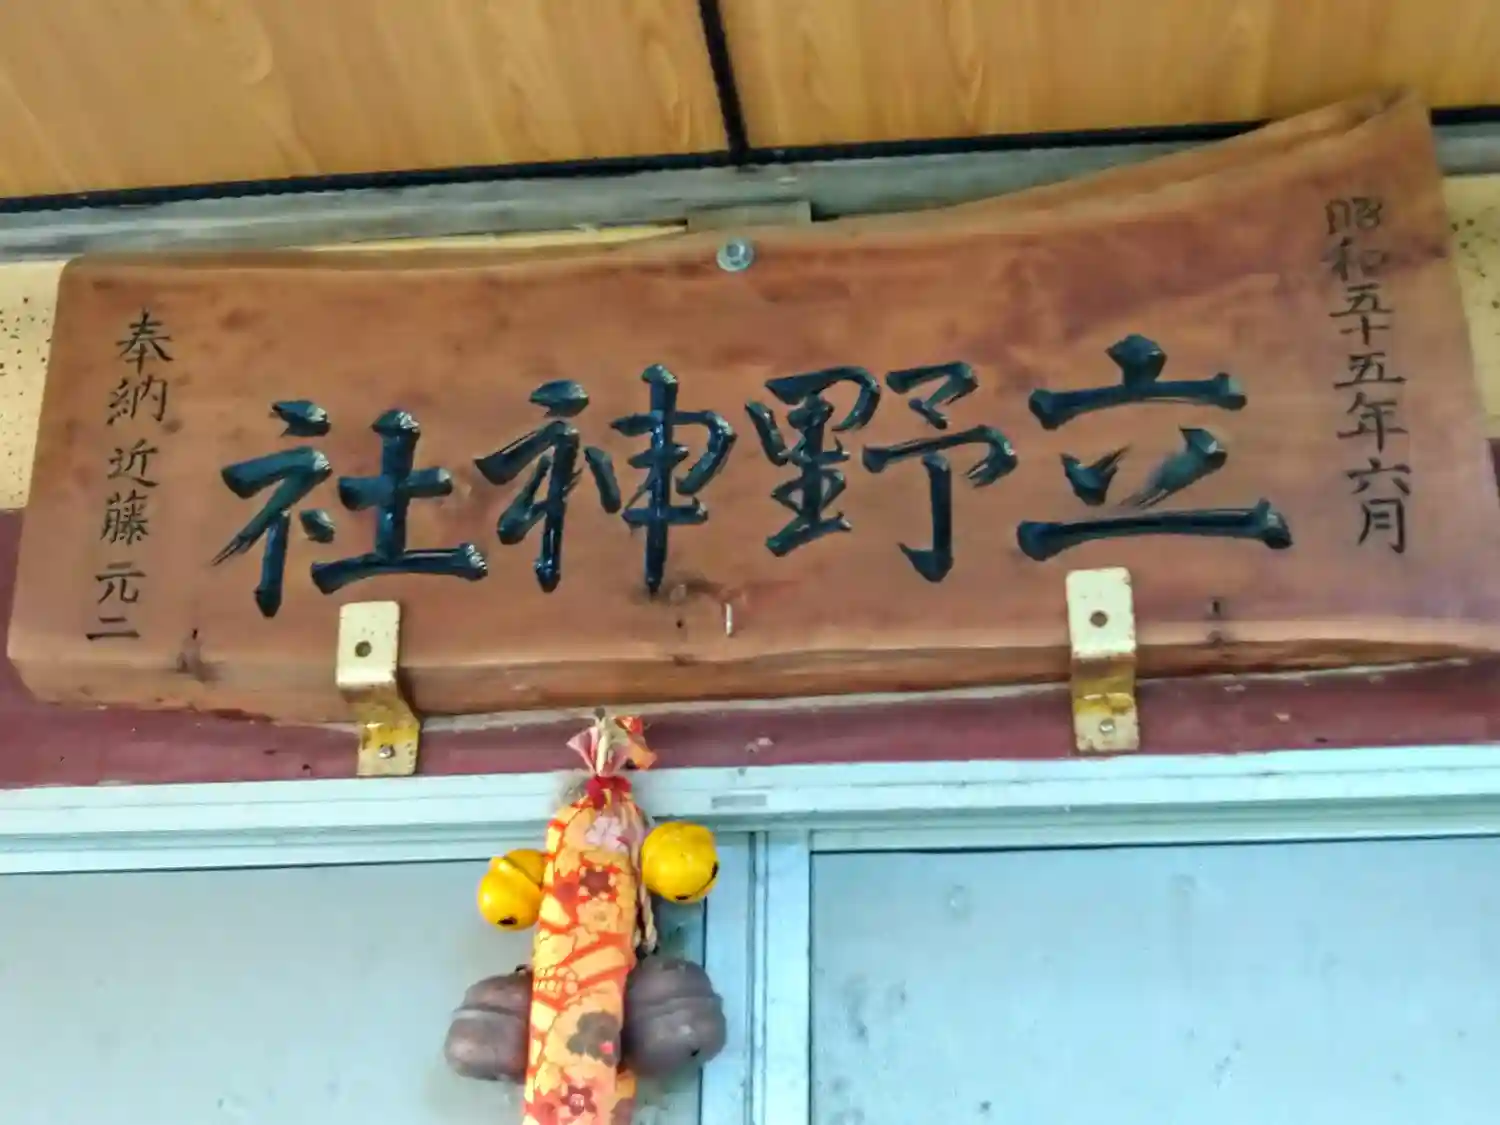 昭和五十五年六月
立野神社
奉納 近藤元二